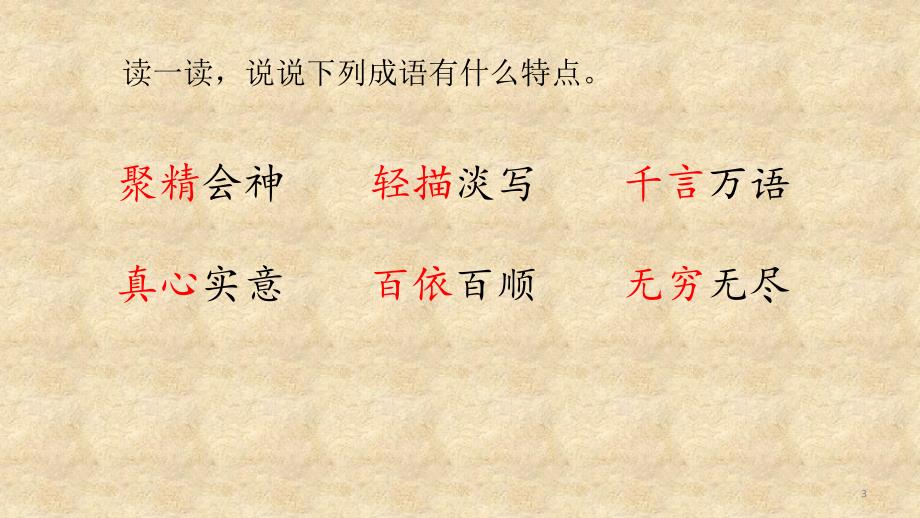 读一读，说说下列成语有什么特点。
聚精会神 轻描淡写 千言万语
真心实意 百依百顺 无穷无尽
3